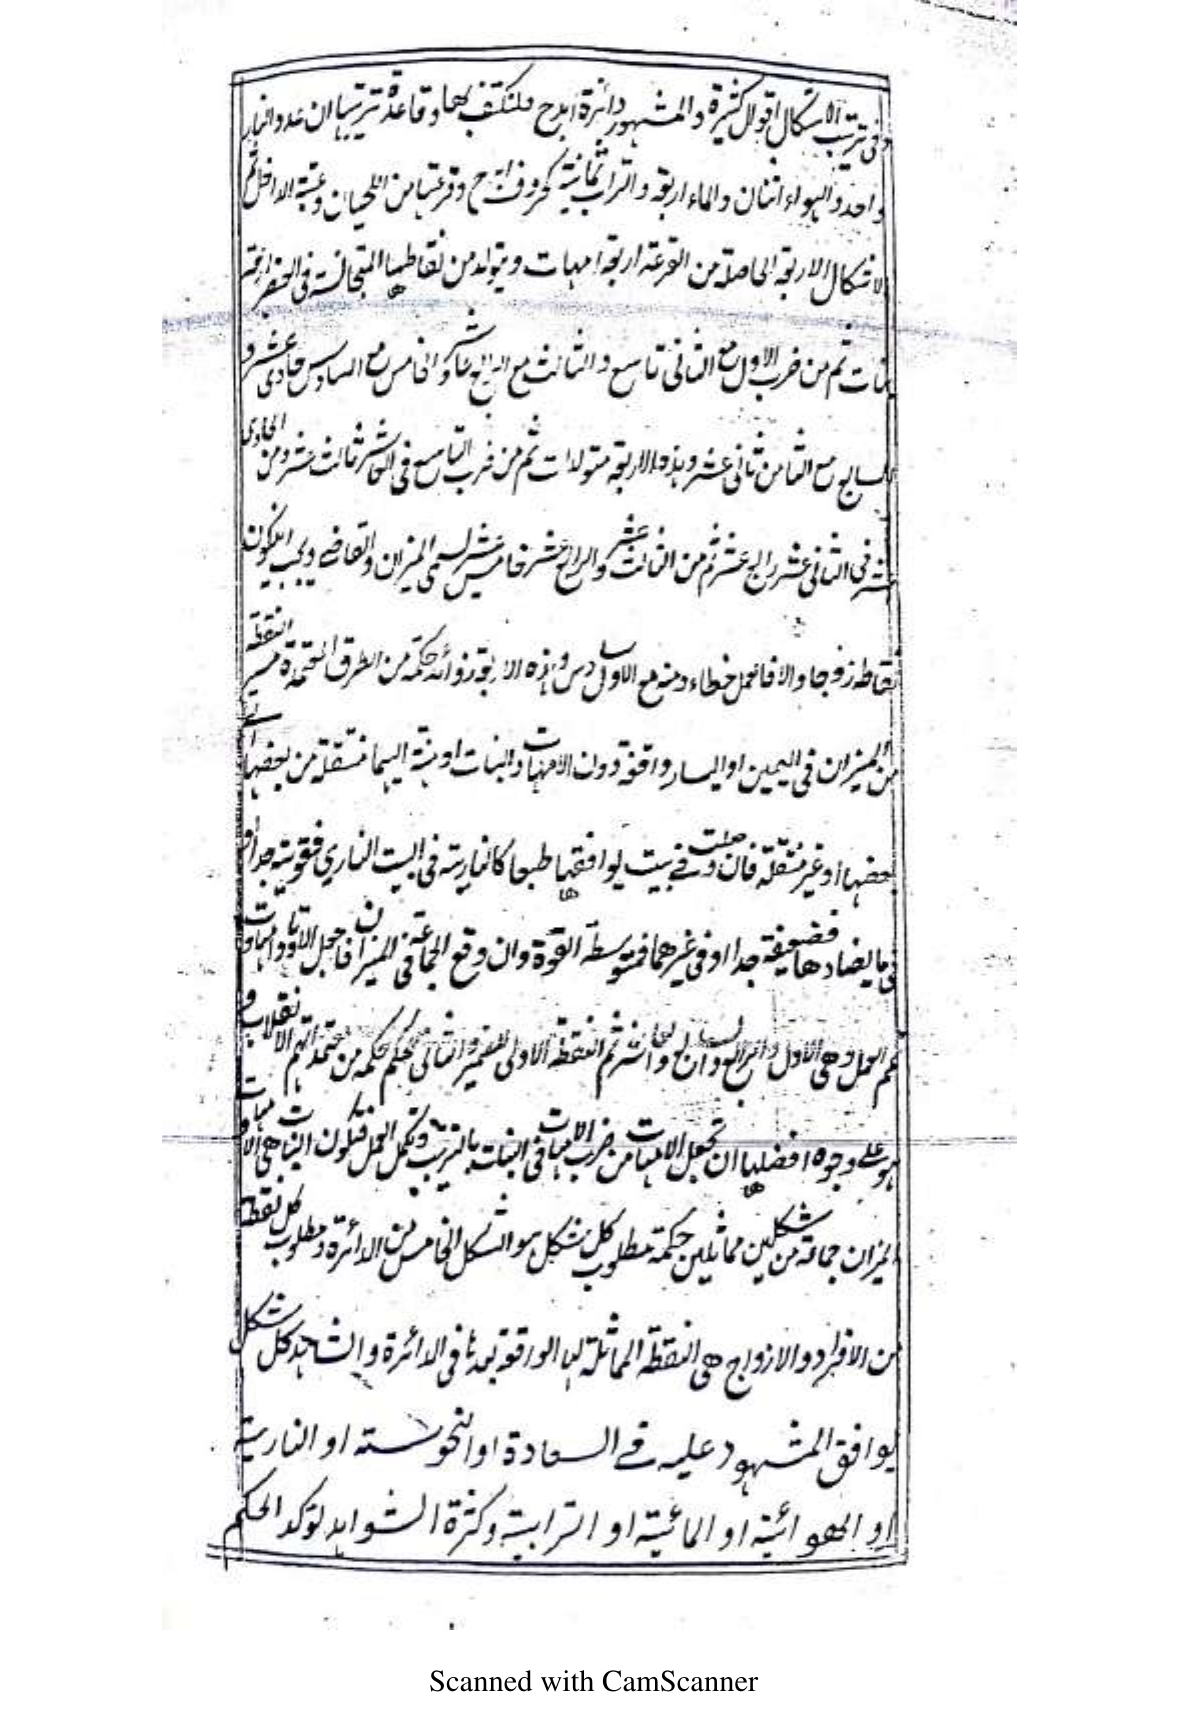 وفي ترتيب الاشكال اقوال كثيرة والمشهور دائرة ابدح فلنكتف بها وقاعدة ترتيبها ان عدد النار
واحد والهواء اثنان والماء اربعة والتراب ثمانية كحروف ابدح وقرعتها من اللحيان وعتبة الداخل ثم
الاشكال الاربعة الحاصلة من القرعة اربعة امهات ويتولد من نقاطها المتجانسة في العنصر اربعة
بنات ثم من ضرب الاول مع الثاني تاسع والثالث مع الرابع عاشر والخامس مع السادس حادي عشر و
السابع مع الثامن ثاني عشر وهذه الاربعة متولدات ثم من ضرب التاسع في العاشر ثالث عشر ومن الحادي
عشر في الثاني عشر رابع عشر ثم من الثالث عشر والرابع عشر خامس عشر يسمى الميزان والقاضي ويجب ان يكون
نقاطه زوجا والا فالعمل خطاء ومنه مع الاول سادس وهذه الاربعة زوائد حكمة من الطرق المعتمدة سير النقطة
من الميزان في اليمين او اليسار واقفة دون الامهات والبنات او منتهية اليها منتقلة من بعضها الى
بعضها او غير منتقلة فان دخلت في بيت يوافقها طبعا كالنارية في البيت الناري فقوية جدا او
في ما يضادها فضعيفة جدا او في غيرهما فمتوسطة القوة وان وقع الجماعة في الميزان فاجعل الاوتاد امهات و
تمم العمل وهي الاول والرابع والسابع والعاشر ثم النقطة الاولى للضمير والثاني للحكم حكمة من معتمداتهم الانقلاب و
هو على وجوه افضلها ان تجعل الامهات من ضرب الامهات في البنات بالترتيب وتكمل العمل فتكون البنات هي الامهات و
الميزان جماعة من شكلين مماثلين حكمة مطلوب كل شكل هو الشكل الخامس من الدائرة ومطلوب كل نقطة
من الافراد والازواج هي النقطة المماثلة لها الواقعة بعدها في الدائرة والشاهد كل شكل
يوافق المشهود عليه في السعادة او النحوسة او النارية
او الهوائية او المائية او الترابية وكثرة الشواهد لتوكد الحكم
Scanned with CamScanner